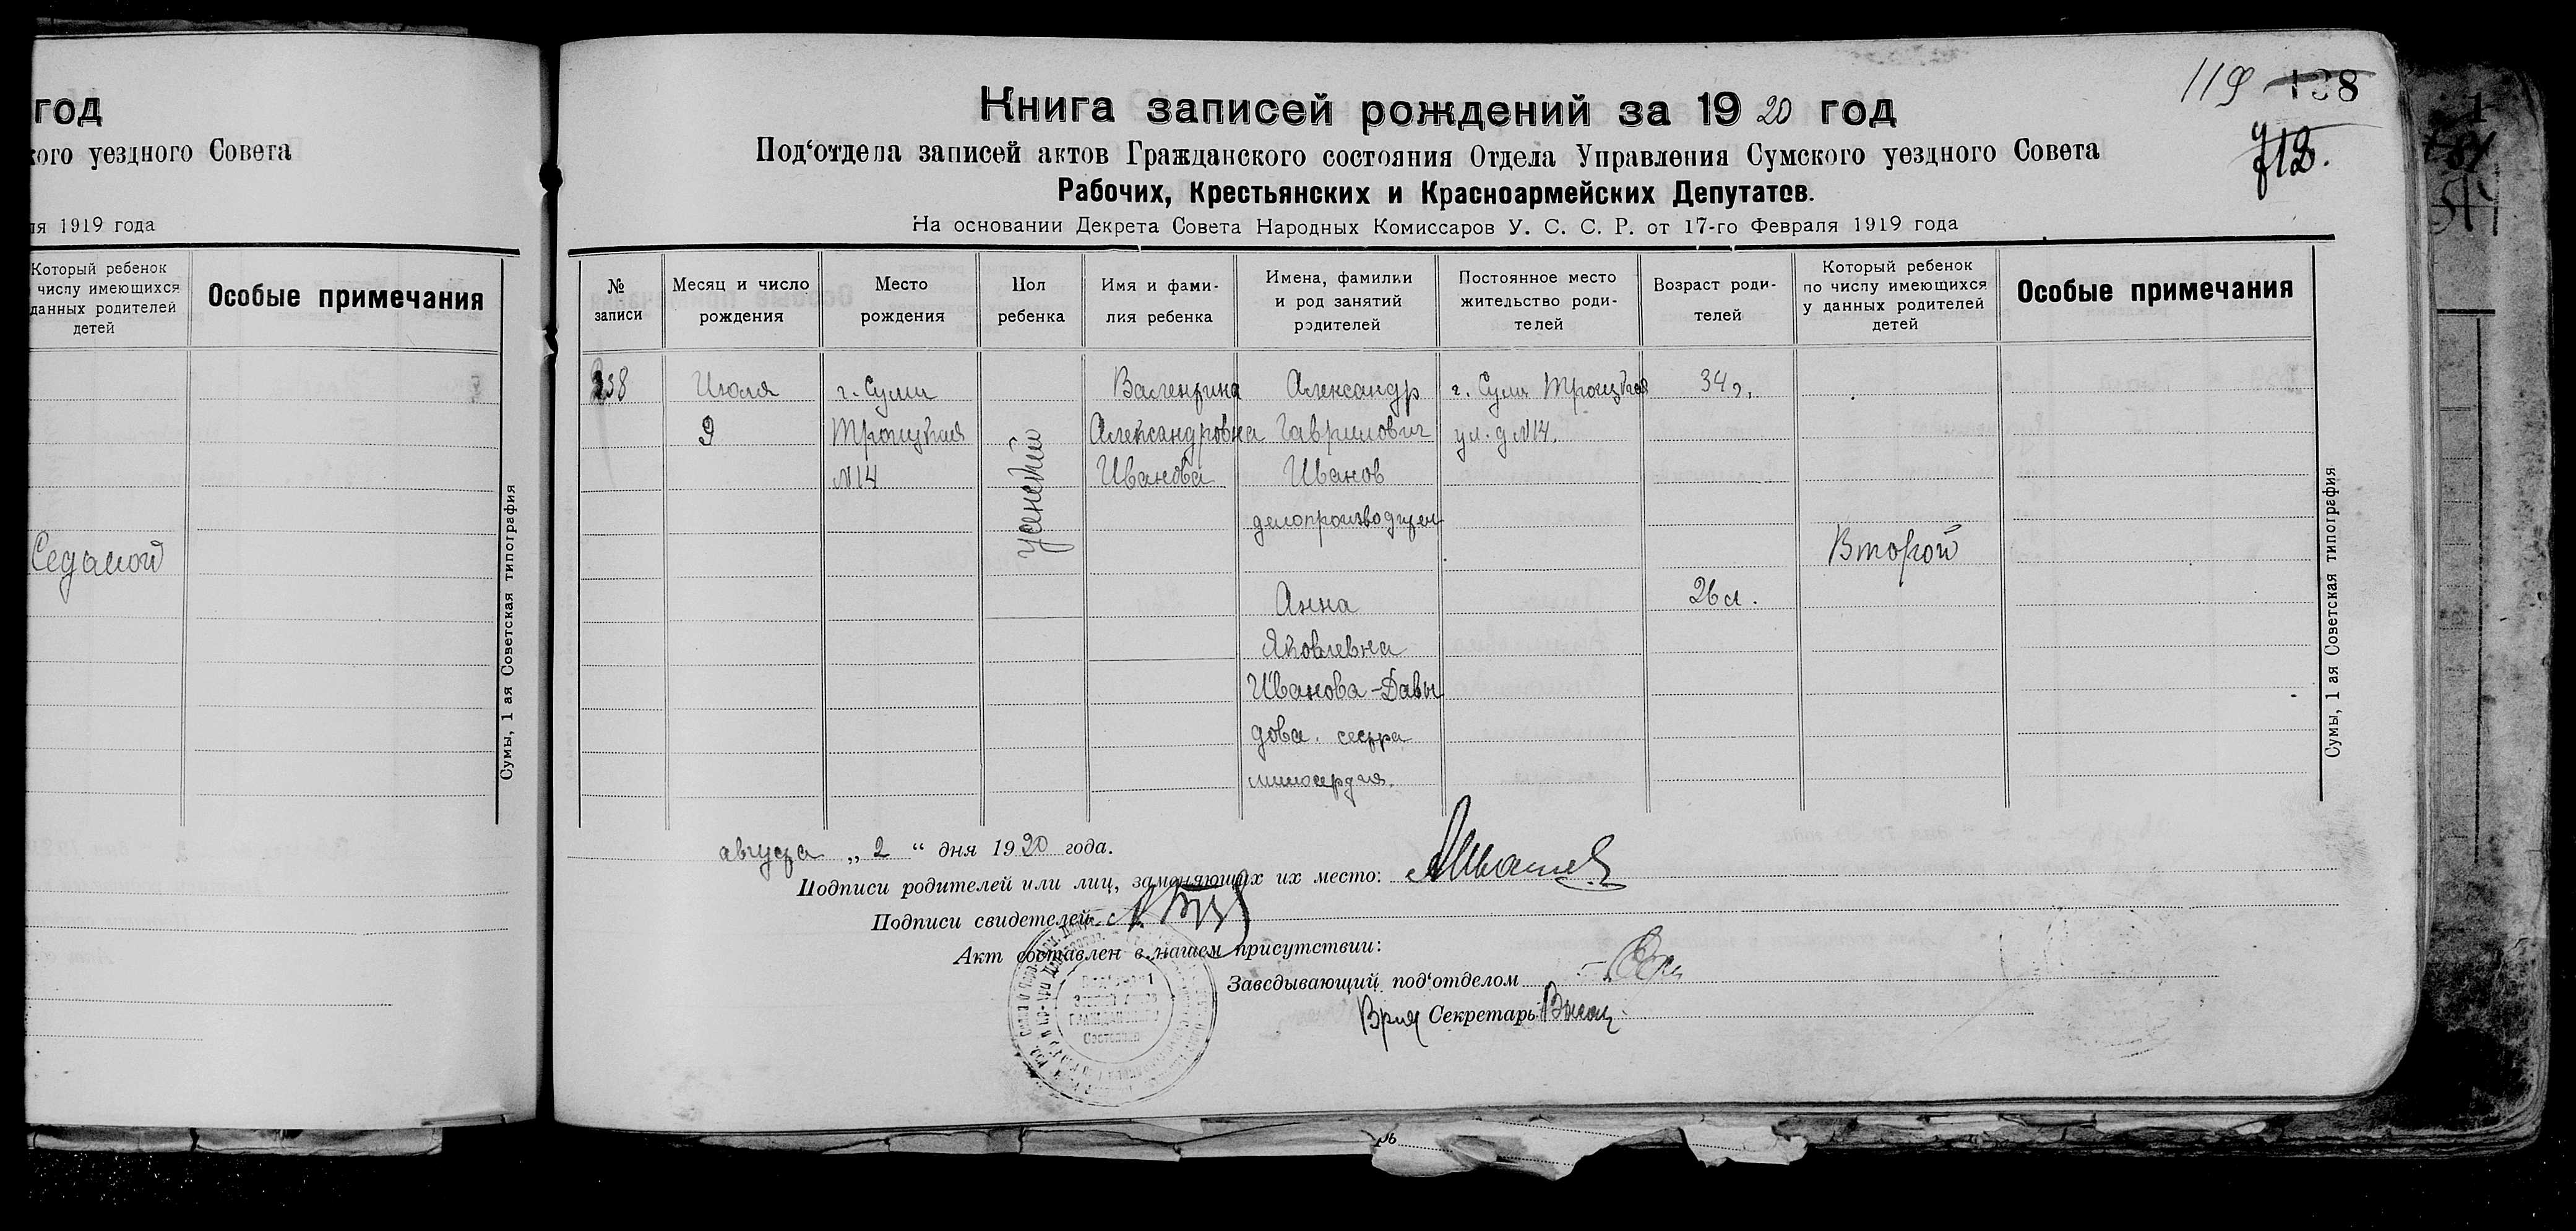 год
кого уездного Совета
ля 1919 года
Который ребенок
числу имеющихся
данных родителей
детей
Особые примечания
Седьмой
Сумы, 1 ая Советская типография
119 138
Книга записей рождений за 1920 год
Под‘отдела записей актов Гражданского состояния Отдела Управления Сумского уездного Совета
Рабочих, Крестьянских и Красноармейских Депутатов.
На основании Декрета Совета Народных Комиссаров У. С. С. Р. от 17-го Февраля 1919 года
№
записи
Месяц и число
рождения
Место
рождения
Пол
ребенка
Имя и фами-
лия ребенка
Имена, фамилии
и род занятий
родителей
Постоянное место
жительство роди-
телей
Возраст роди-
телей
Который ребенок
по числу имеющихся
у данных родителей
детей
Особые примечания
338
Июля
9
г. Сумы
Троицкая
№14
женский
Валентина
Александровна
Иванова
Александр
Гаврилович
Иванов
делопроизводител
Анна
Яковлевна
Иванова-Давы
дова. сестра
милосердия.
г. Сумы Троицкая
ул. д №14.
34 г.
26 л.
Второй
Сумы, 1 ая Советская типография
августа „ 2 “ дня 1920 года.
Подписи родителей или лиц, заменяющих их место:
Подписи свидетелей:
Акт составлен в нашем присутствии:
Заведывающий под‘отделом
Врид Секретарь
Гражданского
Состояния